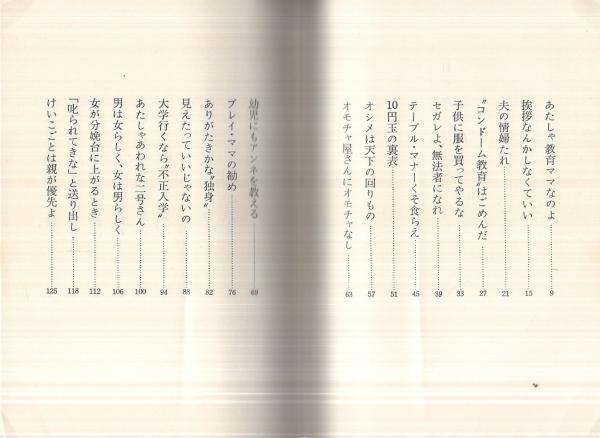 あたしゃ教育ママなのよ……………9
挨拶なんかしなくていい……………15
夫の情婦たれ……………21
〝コンドーム教育〟はごめんだ……………27
子供に服を買ってやるな……………33
セガレよ、無法者になれ……………39
テーブル・マナーくそ食らえ……………45
10円玉の裏表……………51
オシメは天下の回りもの……………57
オモチャ屋さんにオモチャなし……………63
幼児にもアンネを教える……………69
プレイ・ママの勧め……………76
ありがたきかな〝独身〟……………82
見えたっていいじゃないの……………88
大学行くなら〝不正入学〟……………94
あたしゃあわれな二号さん……………100
男は女らしく、女は男らしく……………106
女が分娩台に上がるとき……………112
「叱られてきな」と送り出し……………118
けいこごとは親が優先よ……………125